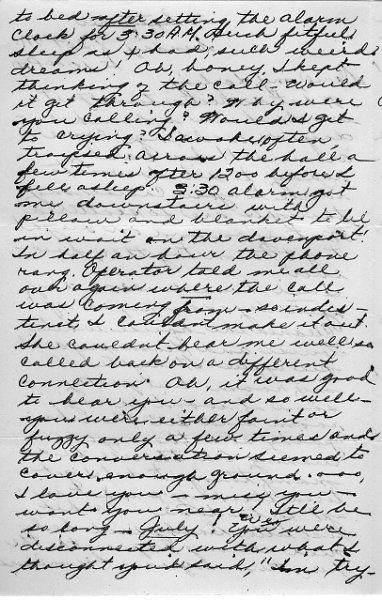 to bed after setting the alarm
clock for 3:30 A.M. Such fitful
sleep as I had, such weird
dreams! Oh, honey, I kept
thinking of the call - would
it get through? Why were
you calling? Would I get
to crying? I awoke often,
traipsed across the hall a
few times after 1200 before I
fell asleep. 3:30 alarm got
me downstairs with
pillow and blanket to be
in wait on the davenport!
In half an hour the phone
rang. Operator told me all
over again where the call
was coming from - so indis-
tinct I couldn't make it out.
She couldn't hear me well so
called back on a different
connection. Oh, it was good
to hear you - and so well -
you were either faint or
fuzzy only a few times and
the conversation seemed to
cover enough ground. ooo,
I love you - miss you -
want you near! It'll be
so long - July! You were
disconnected with what I
thought you'd said, "I'm try-